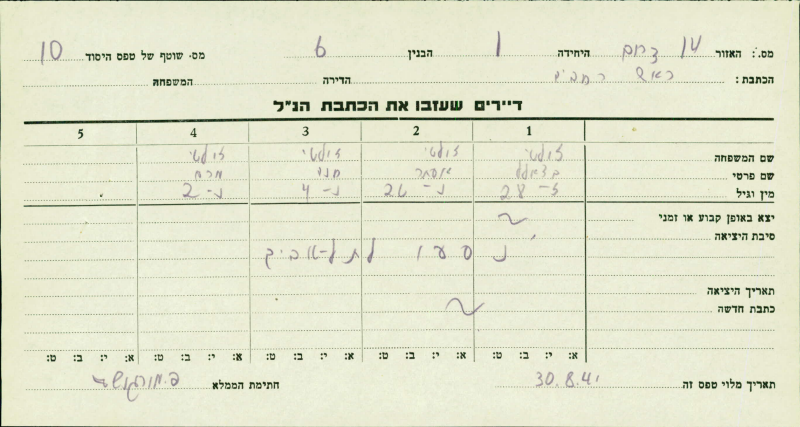 מס.: האזור 14 דרום היחידה 1 הבנין 6 מס. שוטף של טפס היסוד 10
הכתבת: ראש הדירה המשפחה
דיירים שעזבו את הכתבת הנ"ל
1 2 3 4 5
שם המשפחה זולטי זולטי זולטי זולטי
שם פרטי בצלאל אסתר
מין וגיל ז- 28 נ- 26 נ- 4 נ- 2
יצא באופן קבוע או זמני
סיבת היציאה
נסעו לתל-אביב
תאריך היציאה
כתבת חדשה
א: י: ב: ט: א: י: ב: ט: א: י: ב: ט: א: י: ב: ט: א: י: ב: ט:
תאריך מלוי טפס זה 30.8.41 חתימת הממלא